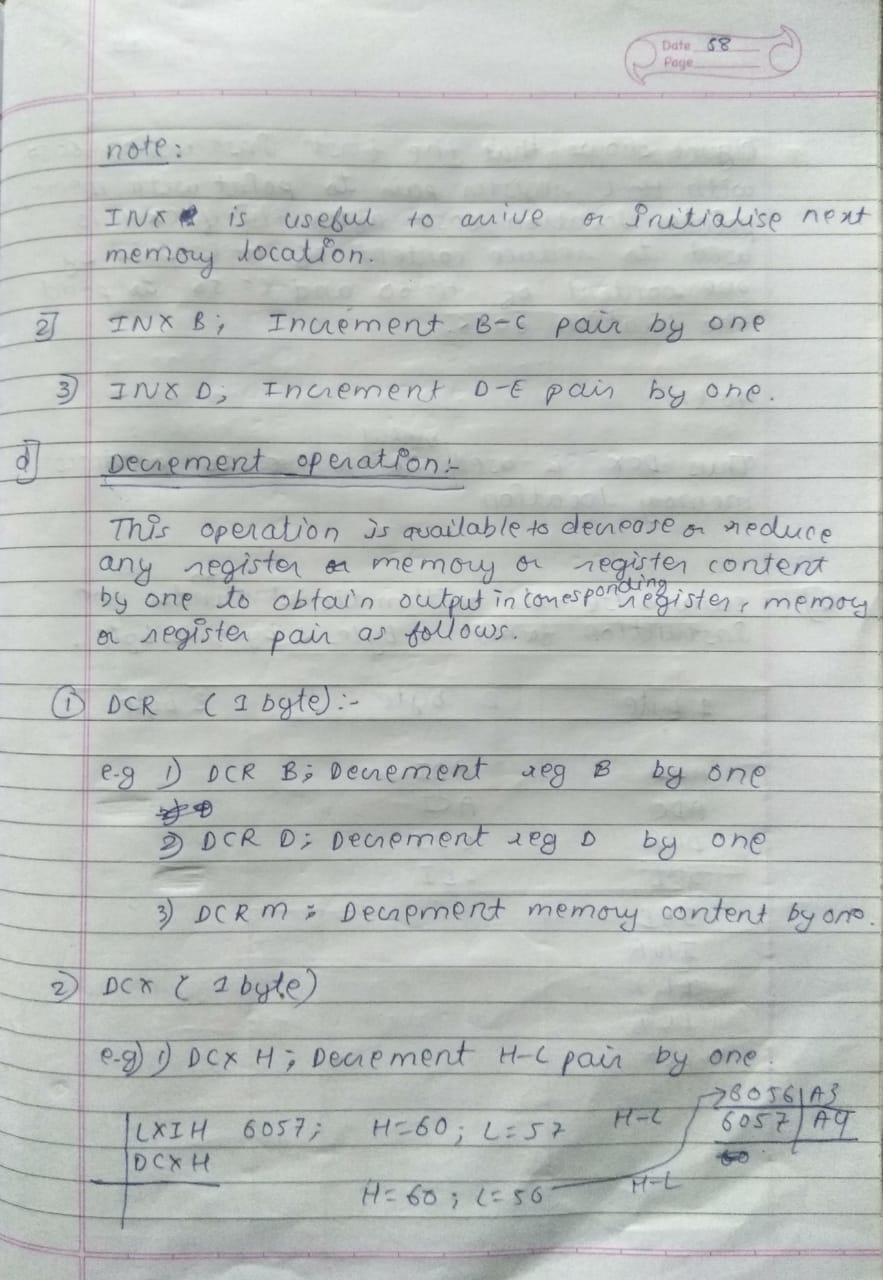 Date 58
Page
note:
INX is useful to arrive or initialise next
memory location.
2] INX B; Increment B-C pair by one
3) INX D; Increment D-E pair by one.
d] Decrement operation:-
This operation is available to decrease or reduce
any register or memory or register content
by one to obtain output in corresponding register, memory
or register pair as follows.
① DCR (1 byte):-
e-g 1) DCR B; Decrement reg B by one
2) DCR D; Decrement reg D by one
3) DCR M; Decrement memory content by one.
2) DCX (1 byte)
e-g) 1) DCX H; Decrement H-L pair by one.
6056 A3
LXIH 6057; H=60; L=57 H-L 6057 A4
DCXH
H=60; L=56 H-L